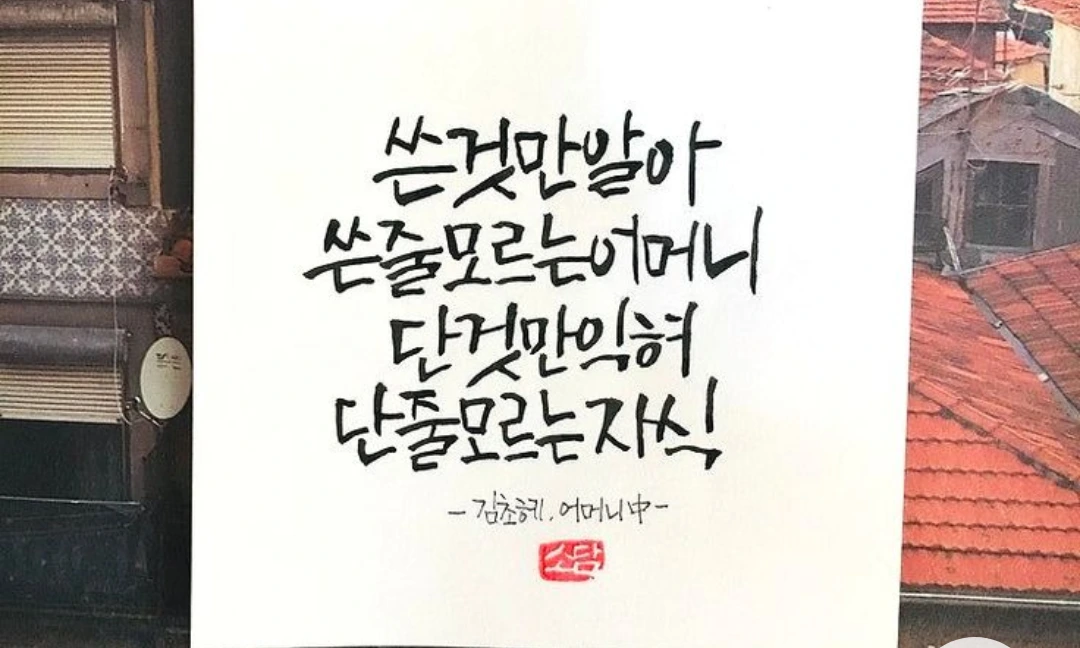 쓴것만알아
쓴줄모르는어머니
단것만익혀
단줄모르는자식
-김초혜, 어머니中-
소담